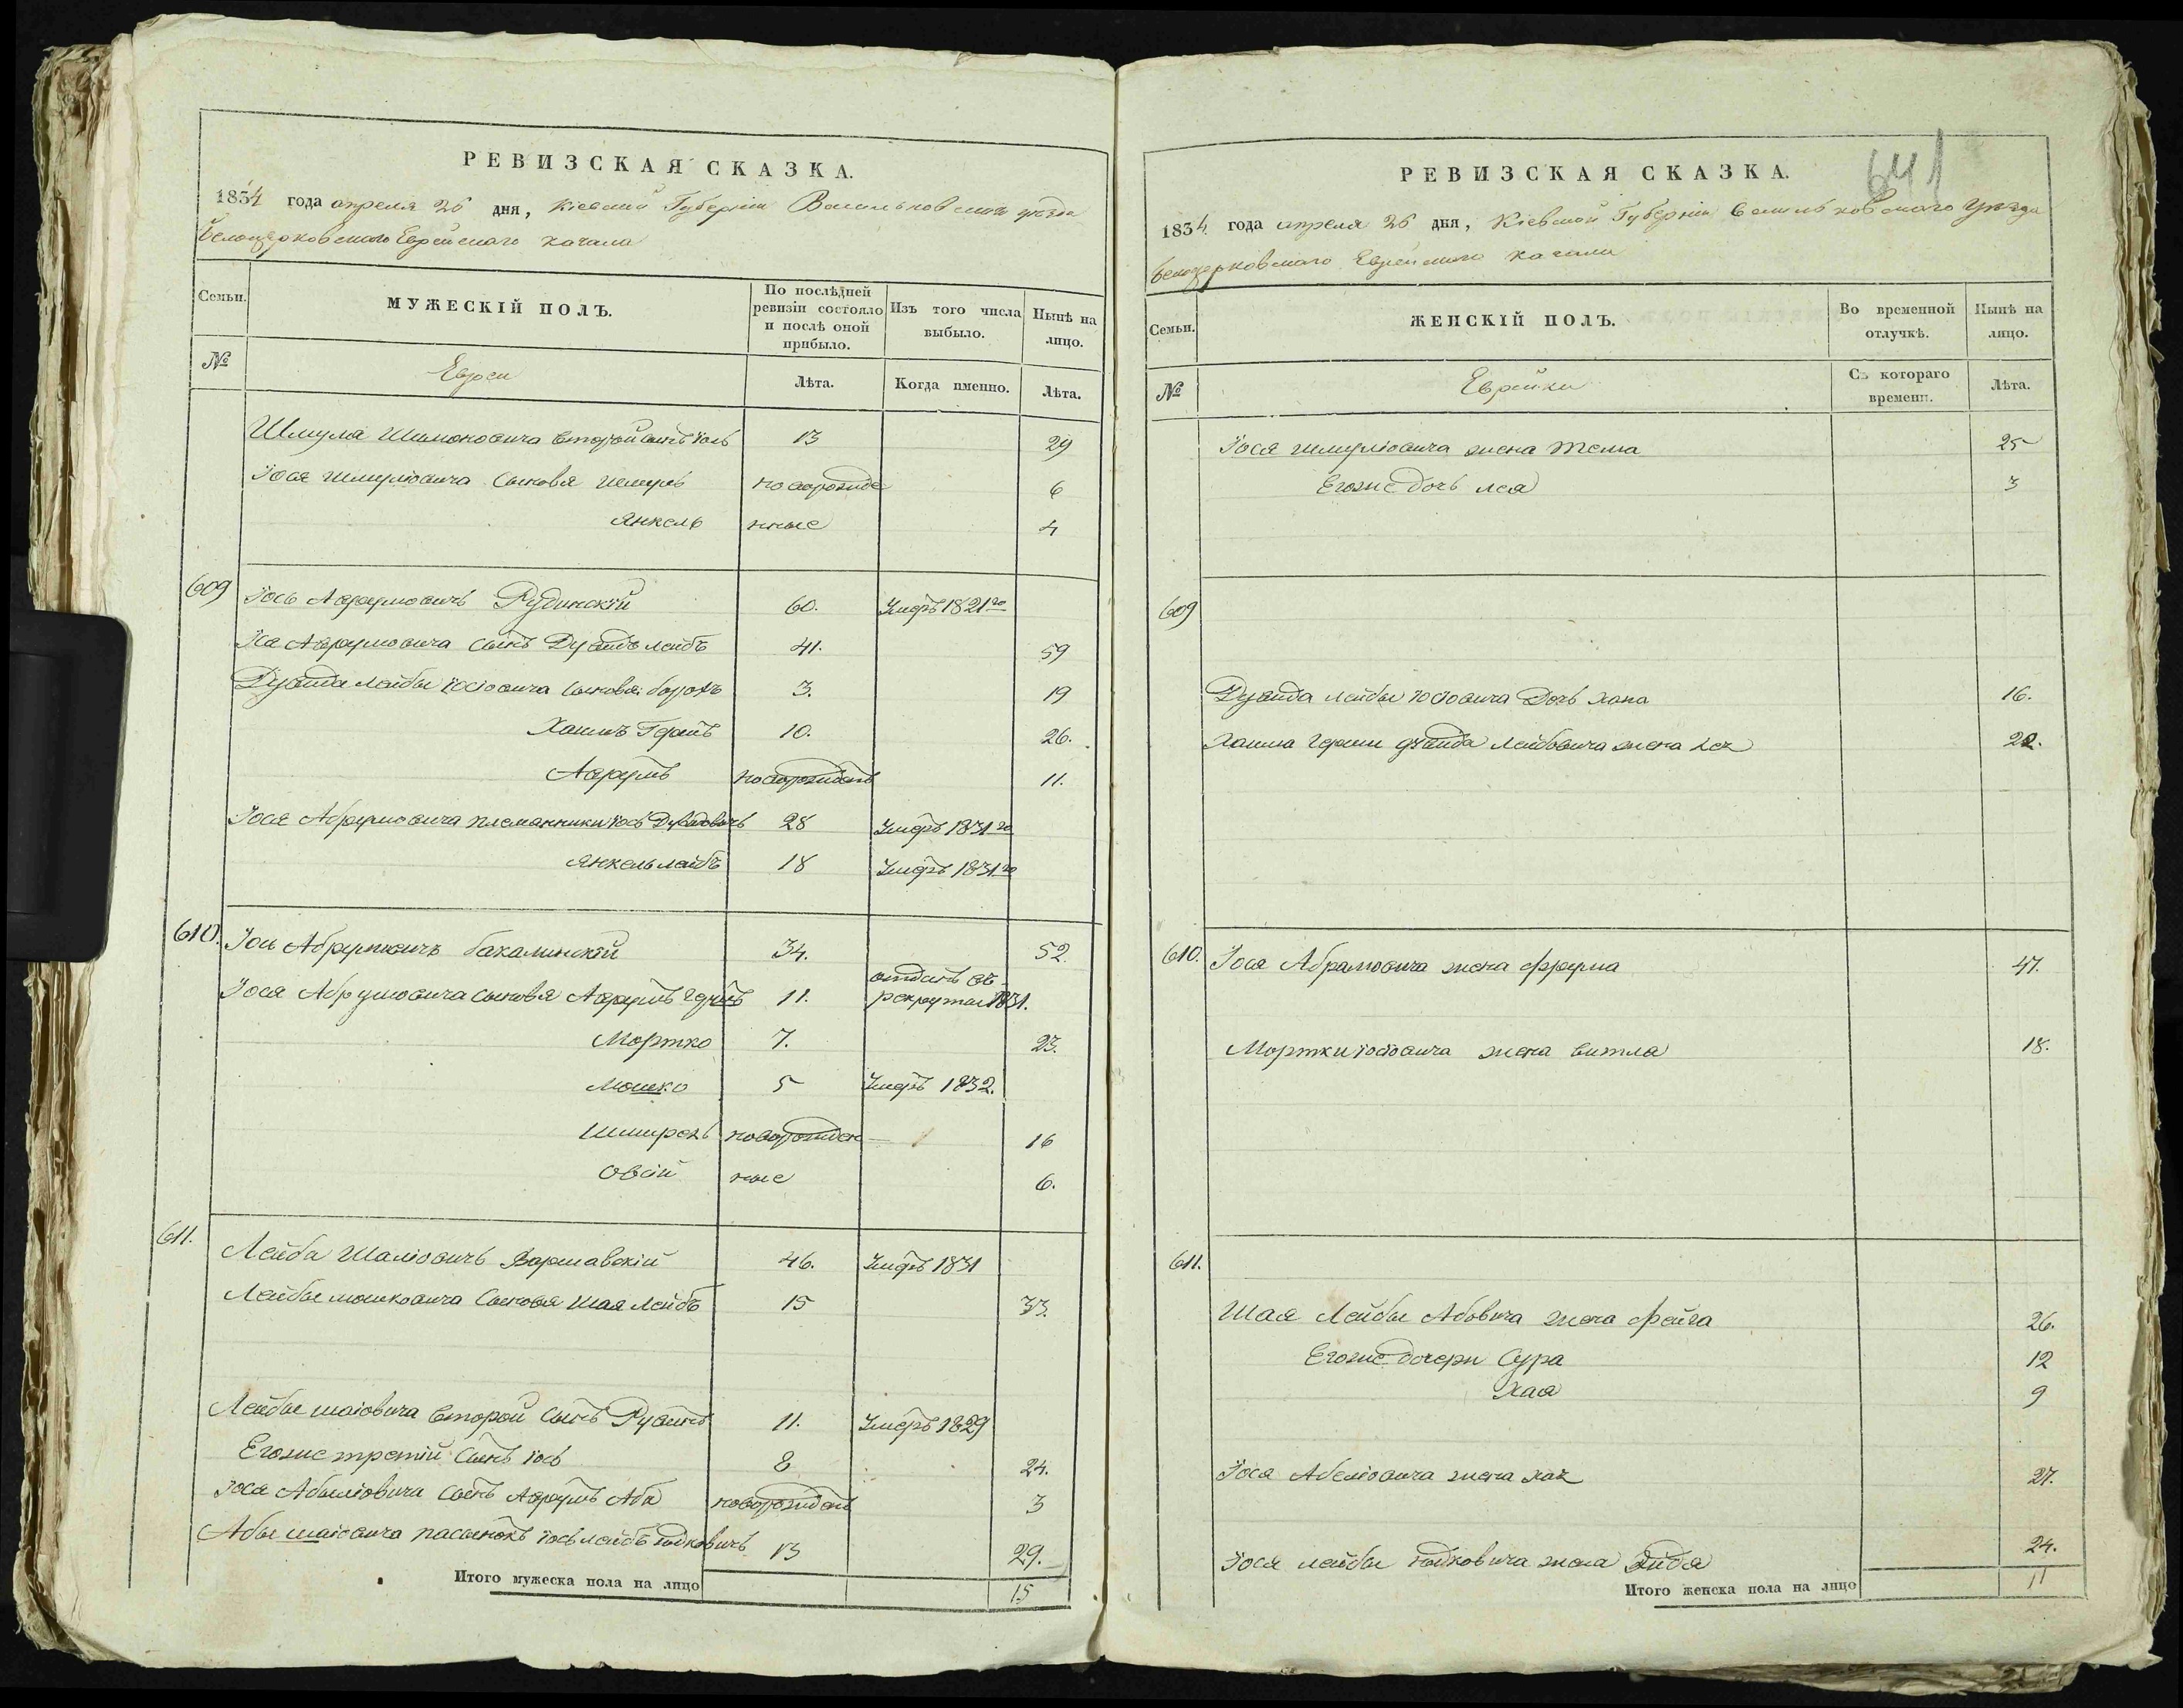 РЕВИЗСКАЯ СКАЗКА.
1834 года апреля 26 дня, Кіевской Губерніи Васильковскаго уезда
Белоцерковскаго Еврейскаго кагала
Семьи.
МУЖЕСКІЙ ПОЛЪ.
По послѣдней ревизіи состояло и послѣ оной прибыло.
Изъ того числа выбыло.
Нынѣ на лицо.
№
Евреи
Лѣта.
Когда именно.
Лѣта.
Шмуля Шимоновича второй сынъ Іось 13 29
Іося Шмулiовича сыновя новорожде 6
Янкель нные 4
609 Іось Аврумовичъ Рудинскій 60. Умеръ 1821го
Іся Аврумовича сынъ Дувидъ Лейбъ 41. 59
Дувида Лейбы Іосіовича сыновя: Борохъ 3. 19
Хаимъ Гершъ 10. 26.
Аврумъ новорожденъ 11.
Іося Абрумовича племянники Іось Дувидовичъ 28 Умеръ 1831го
Янкель Лейбъ 18 Умеръ 1831го
610. Іось Абрумовичъ Бакалинскій 34. 52.
Іося Абрумовича сыновя Аврумъ Гершъ 11. отданъ въ рекруты 1831.
Мортко 7. 23.
Мошко 5 Умеръ 1832.
новорожден 16
Овсій ные 6.
611. Лейба Шаліовичъ Варшавскій 46. Умеръ 1831
Лейбы Мошковича сыновя Шая Лейбъ 15 33.
Лейбы Шаіовича второй сынъ Рувинъ 11. Умеръ 1829
Егоже третій сынъ Іось 8 24.
Іося Абеліовича сынъ Аврумъ Аба новорожденъ 3
Абы Шаіовича пасынокъ Іось Лейбъ Юдковичъ 13 29.
Итого мужеска пола на лицо 15
641
РЕВИЗСКАЯ СКАЗКА.
1834 года апреля 26 дня, Кіевской Губерніи Васильковскаго Уезда
Белоцерковскаго Еврейскаго кагала
Семьи.
ЖЕНСКІЙ ПОЛЪ.
Во временной отлучкѣ.
Нынѣ на лицо.
№
Еврейки
Съ котораго времени.
Лѣта.
Іося Шмуліовича жена Тема 25
Егоже дочь Лея 3
609
Дувида Лейбы Іосіовича дочь Хана 16.
Хаима Герши Дувида Лейбовича жена 22.
610. Іося Абрамовича жена Фрума 47.
Мортки Іосіовича жена Витля 18.
611.
Шая Лейбы Абовича жена Фейга 26.
Егоже дочери Сура 12
Хая 9
Іося Абеліовича жена 27.
Іося Лейбы Юдковича жена 24.
Итого женска пола на лицо 11